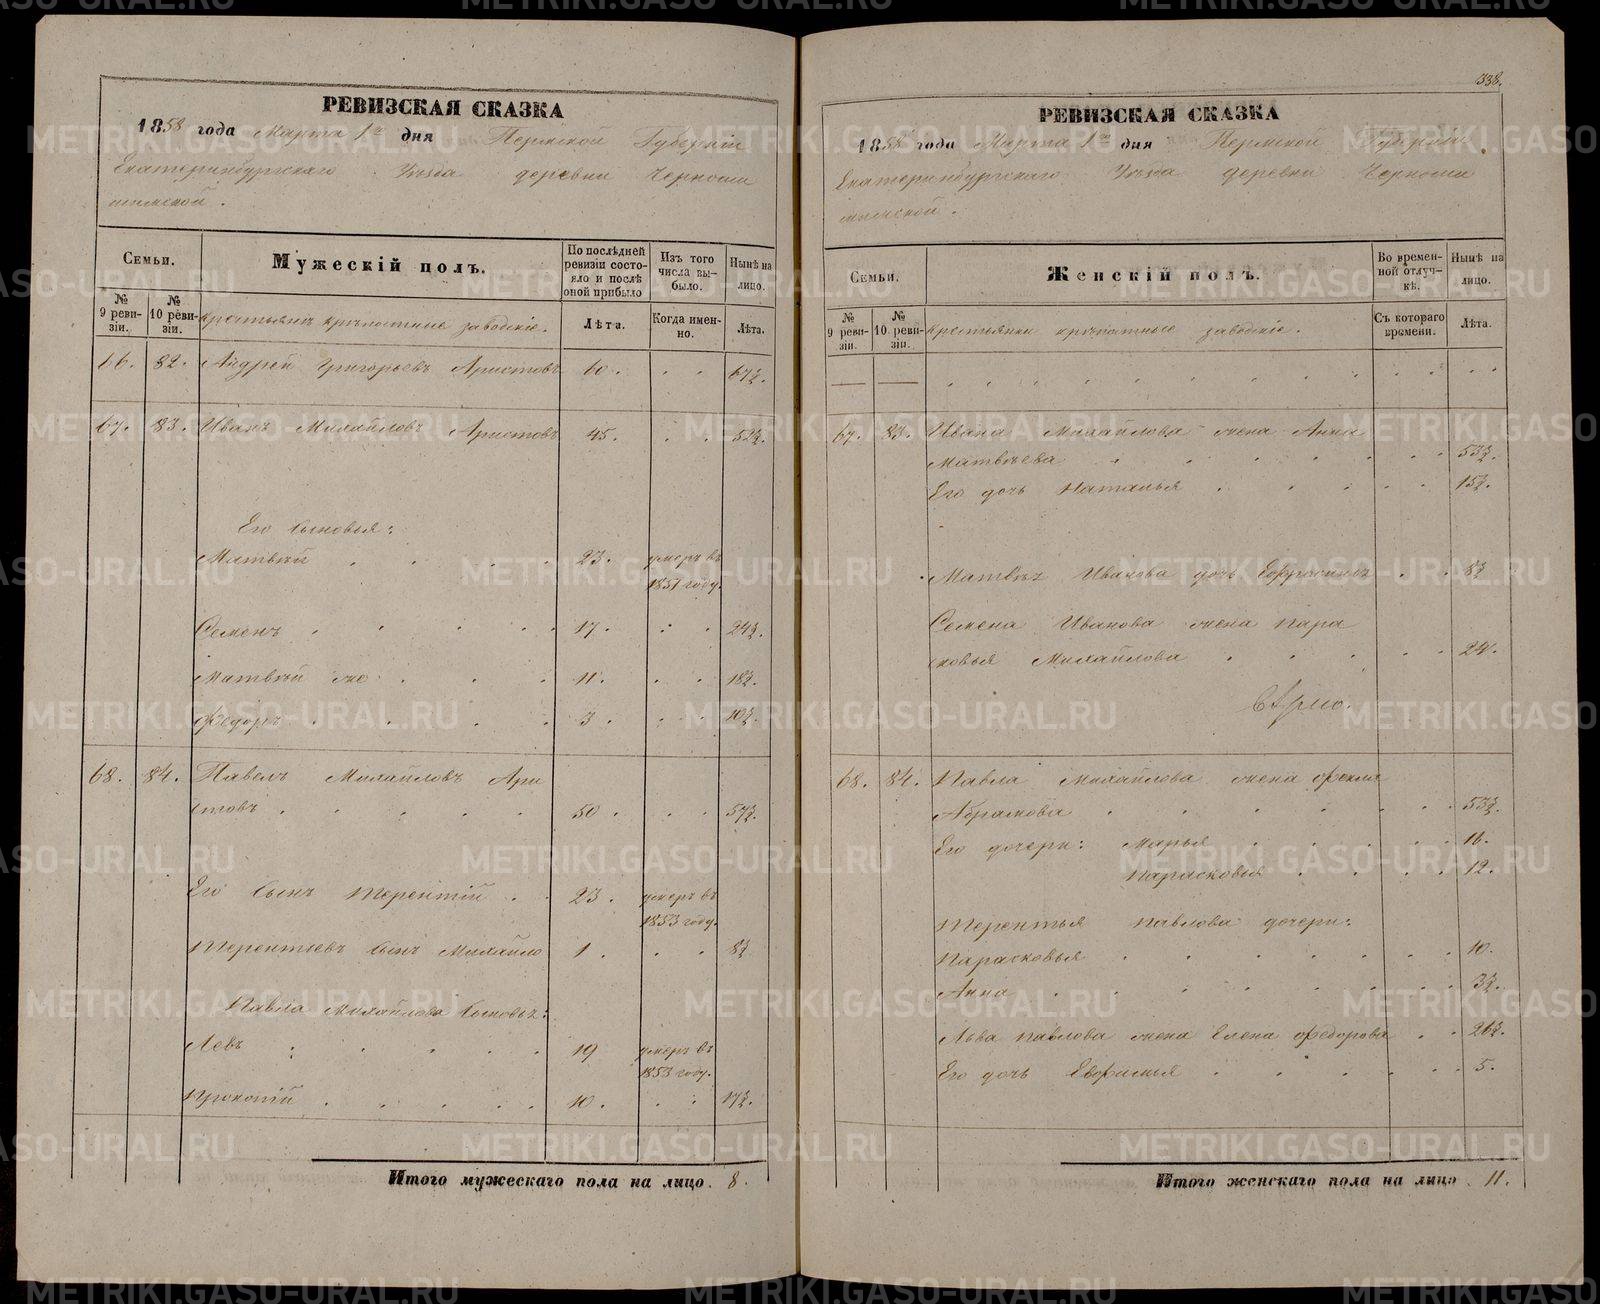 338.
РЕВИЗСКАЯ СКАЗКА
1858 года Марта 1го дня Пермской Губернiи
Екатеринбургскаго Уѣзда деревни Черноши
шимской.
Семьи.
Мужескiй полъ.
По послѣдней ревизiи состояло и послѣ оной прибыло
Изъ того числа выбыло.
Нынѣ на лицо.
№ 9 ревизiи.
№ 10 ревизiи.
Крестьянъ крѣпостные заводскiе.
Лѣта.
Когда именно.
Лѣта.
66. 82. Андрей Григорьевъ Аристовъ 60. 67½.
67. 83. Иванъ Михайловъ Аристовъ 45. 52½.
Его сыновья:
Матвѣй 23. умеръ въ
1851 году.
Семенъ 17. 24½.
Матвѣй же 11. 18½.
Федоръ 3. 10½.
68. 84. Павелъ Михайловъ Ари
стовъ 50. 57½.
Его сынъ Терентiй 23. умеръ въ
1853 году.
Терентьевъ сынъ Михайло 1. 8½
Павла Михайлова сыновья:
Левъ 19 умеръ въ
1853 году.
Прокопiй 10. 17½.
Итого мужескаго пола на лицо. 8.
РЕВИЗСКАЯ СКАЗКА
1858 года Марта 1го дня Пермской Губернiи
Екатеринбургскаго Уѣзда деревни Черноши
шимской.
Семьи.
Женскiй полъ.
Во временной отлучкѣ.
Нынѣ на лицо.
№ 9 ревизiи.
№ 10 ревизiи.
Крестьянки крѣпостные заводскiе.
Съ котораго времени.
Лѣта.
67. 83. Ивана Михайлова жена Анна
Матвѣева 53½.
Его дочь Наталья 15½.
Матвѣя Иванова дочь Ефросинья 8½
Семена Иванова жена Пара
сковья Михайлова 24.
68. 84. Павла Михайлова жена Фекла
Абрамова 53½.
Его дочери: Марья 16.
Парасковья 12.
Терентья Павлова дочери:
Парасковья 10.
Анна 3½.
Льва Павлова жена Елена Федорова 26½.
Его дочь Евфимья 5.
Итого женскаго пола на лицо 11.
METRIKI.GASO-URAL.RU